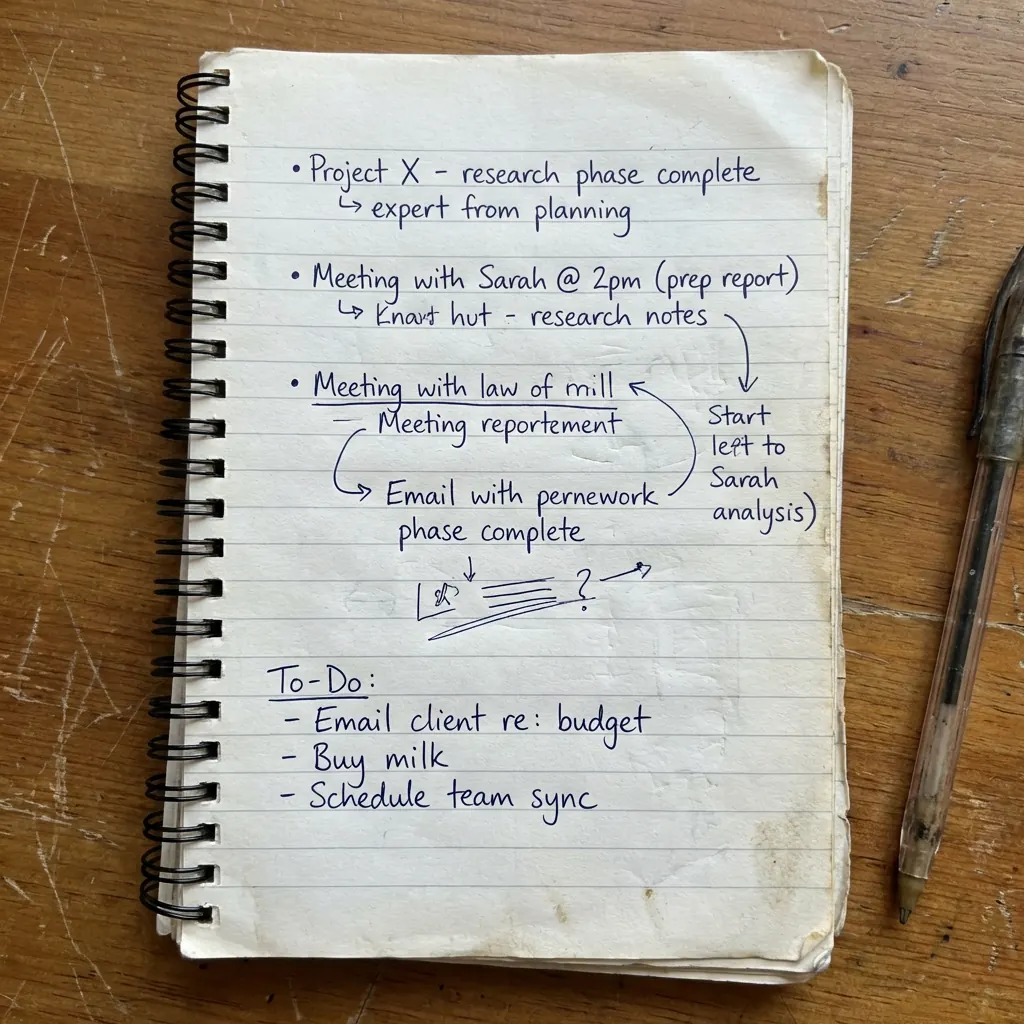 • Project X - research phase complete
↳ expert from planning
• Meeting with Sarah @ 2pm (prep report)
↳ hut - research notes
• Meeting with law of mill
- Meeting reportement
Email with pernework
phase complete
Start
left to
Sarah
analysis)
?
To-Do:
- Email client re: budget
- Buy milk
- Schedule team sync